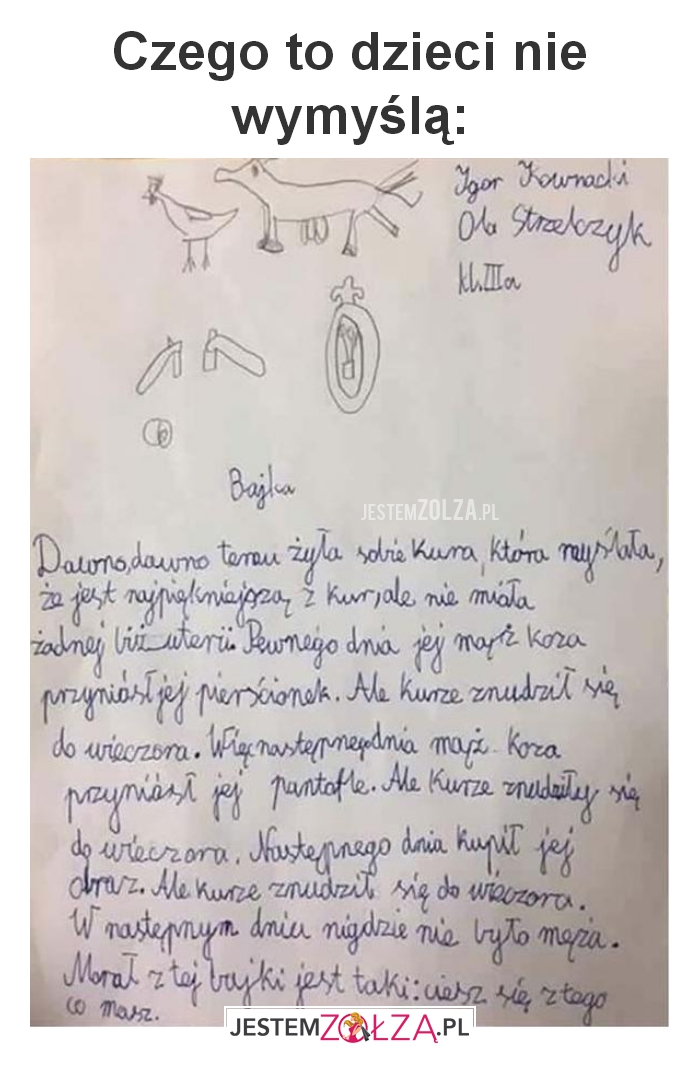 Czego to dzieci nie
wymyślą:
Igor Kownacki
Ola Strzelczyk
kl. III a
Bajka
JESTEMZOLZA.PL
Dawno, dawno temu żyła sobie kura, która myślała,
że jest najpiękniejszą z kur, ale nie miała
żadnej biżuterii. Pewnego dnia jej mąż koza
przyniósł jej pierścionek. Ale kurze znudził się
do wieczora. Więc następnego dnia mąż koza
przyniósł jej pantofle. Ale kurze znudziły się
do wieczora. Następnego dnia kupił jej
obraz. Ale kurze znudził się do wieczora.
W następnym dniu nigdzie nie było męża.
Morał z tej bajki jest taki: ciesz się z tego
co masz.
JESTEMZOŁZA.PL